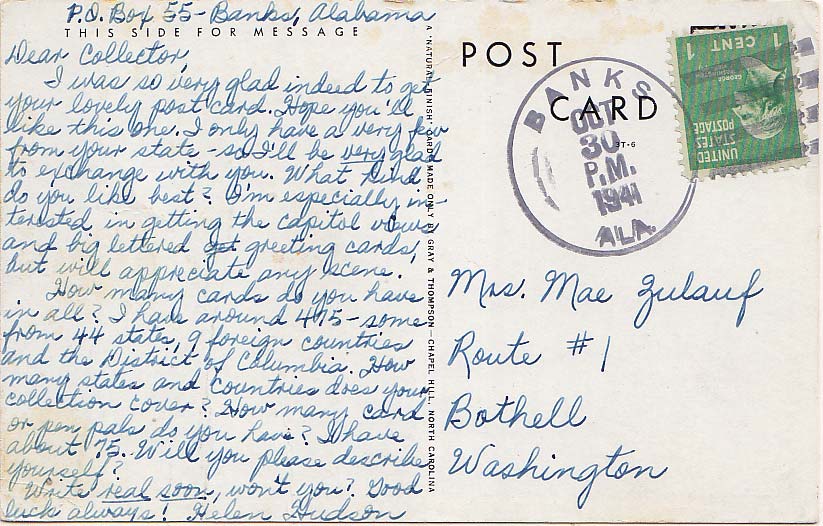 P.O. Box 55 - Banks, Alabama
THIS SIDE FOR MESSAGE
Dear Collector,
I was so very glad indeed to get
your lovely post card. Hope you'll
like this one. I only have a very few
from your state - so I'll be very glad
to exchange with you. What kind
do you like best? I'm especially in-
terested in getting the capitol views
and big lettered greeting cards,
but will appreciate any scene.
How many cards do you have
in all? I have around 475 - some
from 44 states, 9 foreign countries
and the District of Columbia. How
many states and countries does your
collection cover? How many card
or pen pals do you have? I have
about 75. Will you please describe
yourself?
Write real soon, won't you? Good
luck always! Helen Hudson
A "NATURAL FINISH" CARD MADE ONLY BY GRAY & THOMPSON — CHAPEL HILL, NORTH CAROLINA
POST
CARD
BANKS
OCT
30
P.M.
1941
ALA.
1 CENT 1
GEORGE
WASHINGTON
UNITED
STATES
POSTAGE
Mrs. Mae Zulauf
Route #1
Bothell
Washington